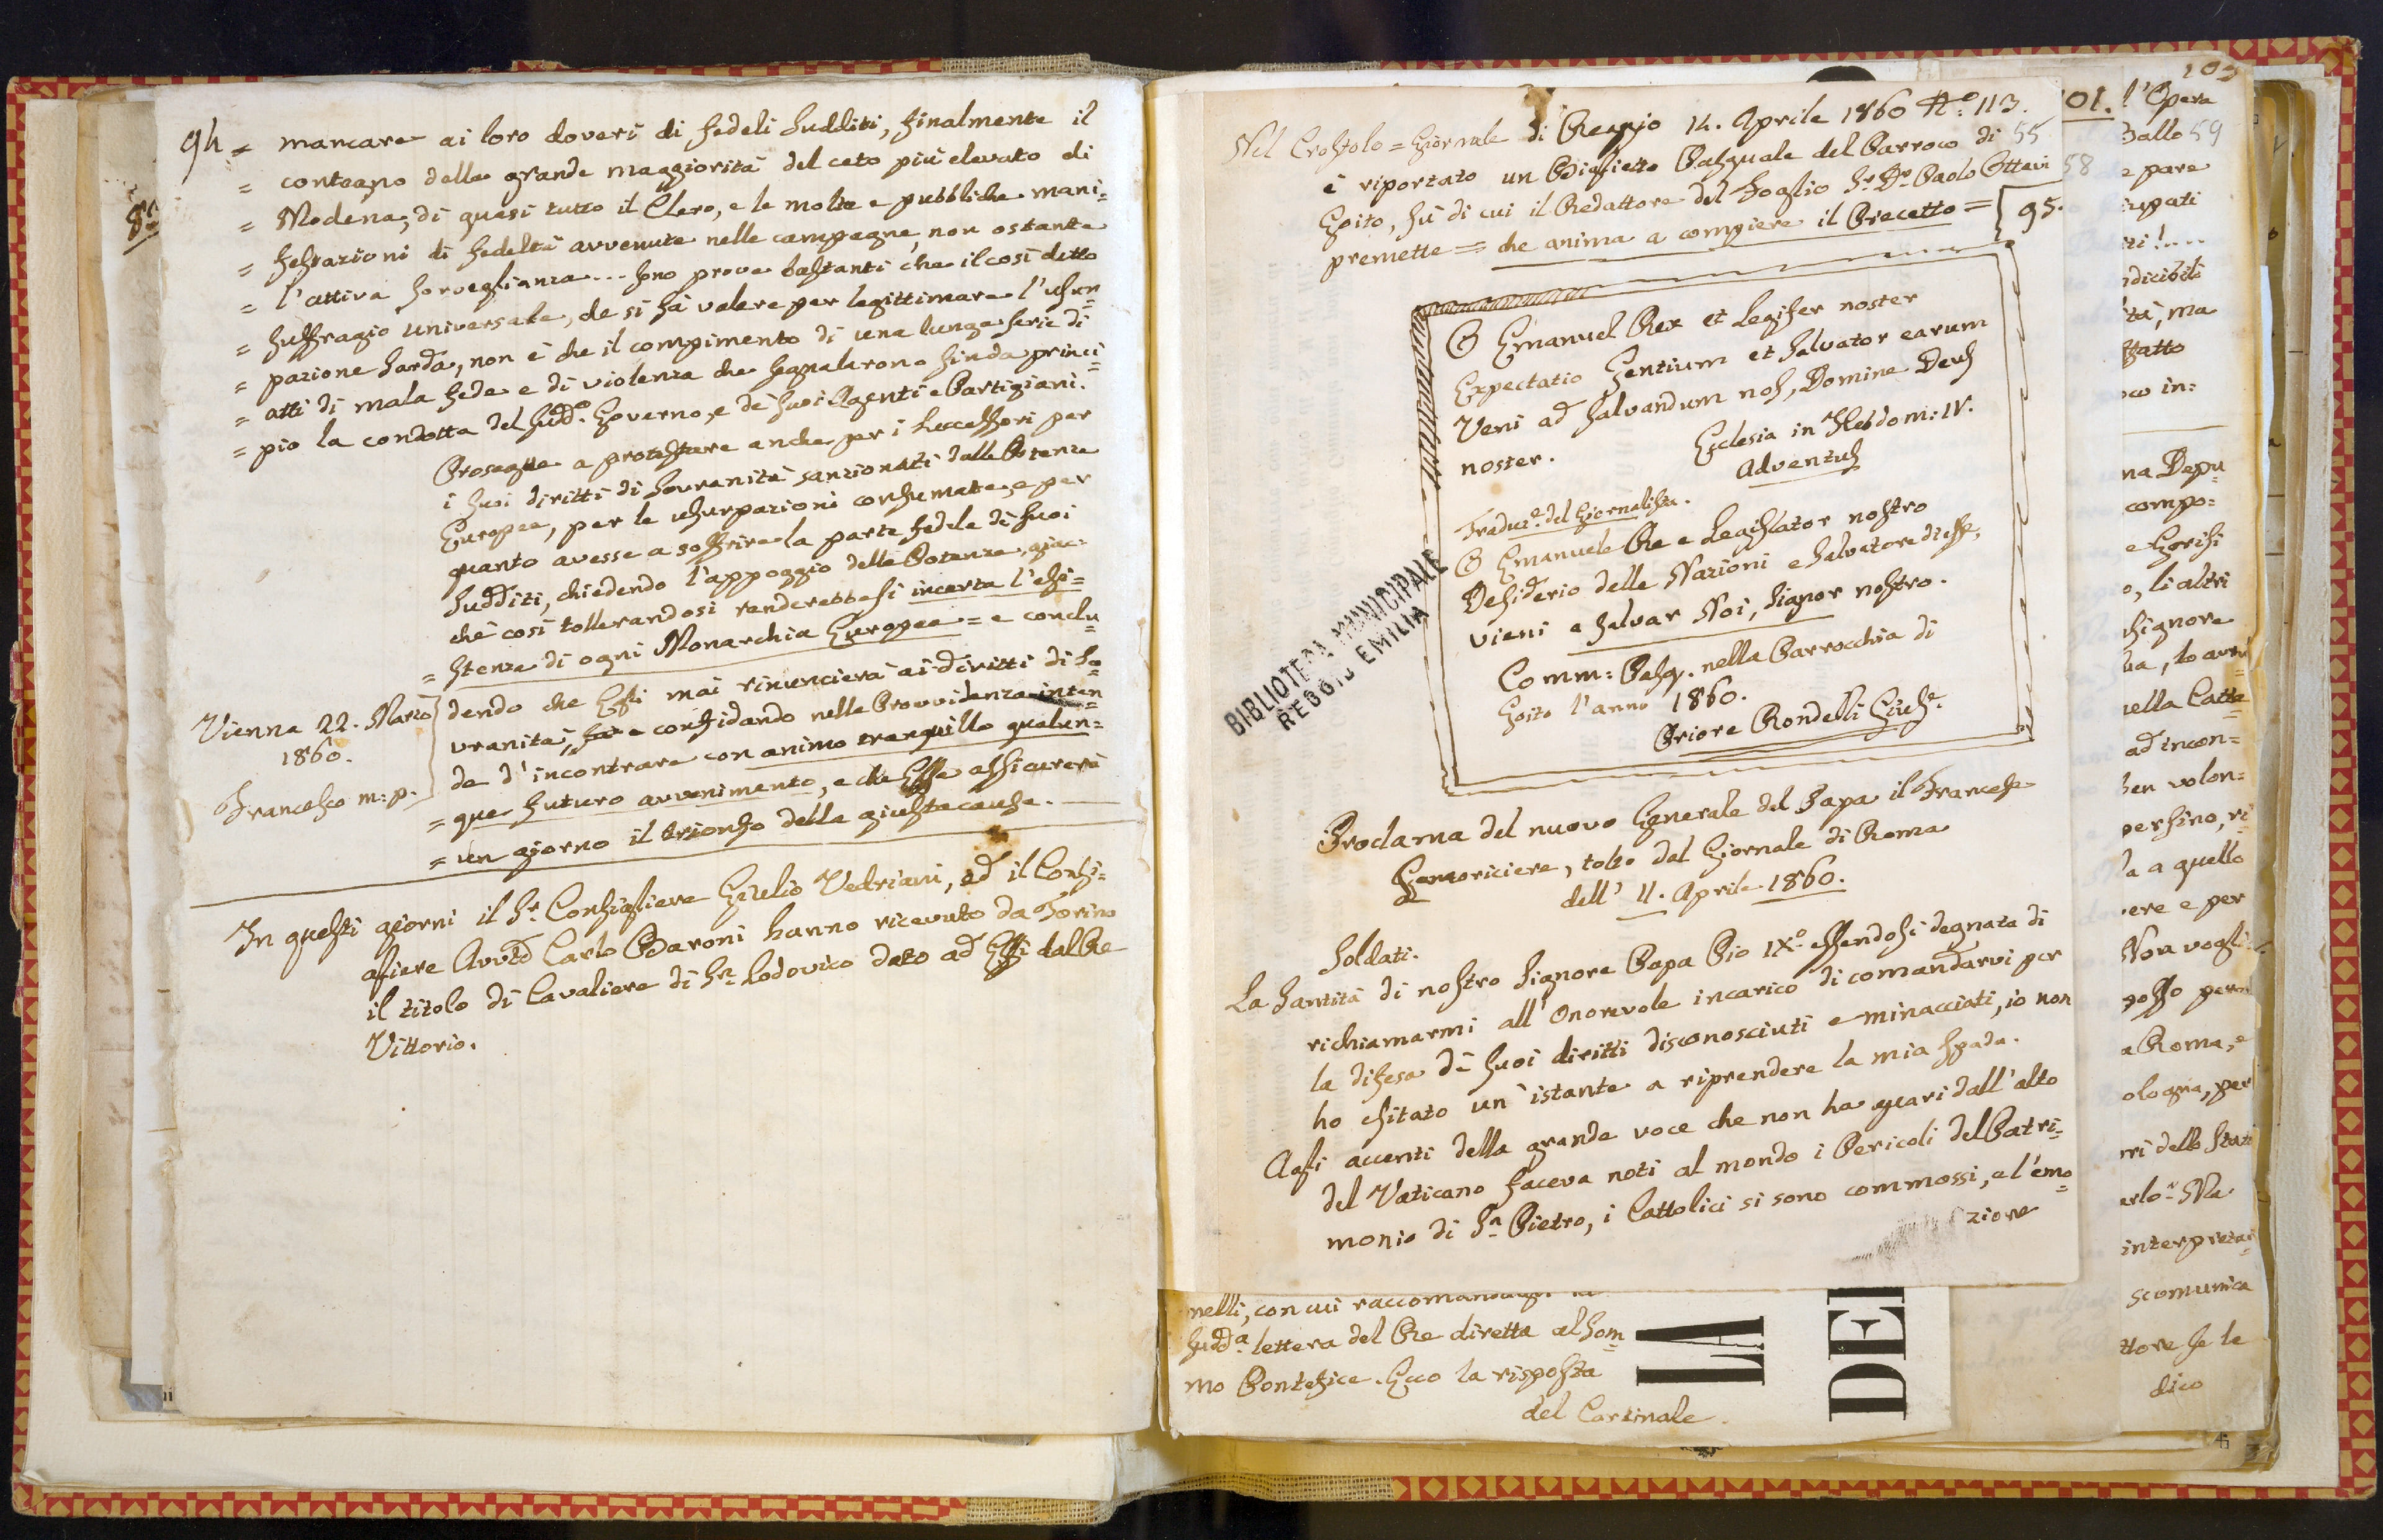 94 = mancare ai loro doveri di fedeli sudditi, finalmente il
= contegno della grande maggiorità del ceto più elevato di
= Modena, di quasi tutto il Clero, e le molte e pubbliche mani=
= festazioni di fedeltà avvenute nelle campagne, non ostante
= l'attiva sorveglianza... sono prove bastanti che il così detto
= suffragio universale, che si fà valere per legittimare l'usur=
= pazione sarda, non è che il compimento di una lunga serie di
= atti di mala fede e di violenza che segnalarono sin da princi=
= pio la condotta del sudd.o Governo, e de' suoi Agenti e Partigiani.
Prosegue a protestare anche per i successori per
i suoi diritti di Sovranità sanzionati dalle Potenze
Europee, per le usurpazioni consumate, e per
quanto avesse a soffrire la parte fedele di suoi
Sudditi, chiedendo l'appoggio delle Potenze, giac=
chè così tollerandosi renderebbesi incerta l'esi=
= stenza di ogni Monarchia Europea = e conclu=
dendo che Egli mai rinuncierà ai diritti di So=
vranità, e confidando nella Provvidenza inten=
de d'incontrare con animo tranquillo qualun=
= que futuro avvenimento, e che Essa assicurerà
= un giorno il trionfo della giusta causa.
Vienna 22. Marzo
1860.
Francesco m: p.
In questi giorni il Sr. Consigliere Giulio Vedriani, ed il Consi=
gliere Avvto Carlo Baroni hanno ricevuto da Torino
il titolo di Cavaliere di Sn. Lodovico dato ad Essi dal Re
Vittorio.
Nel Crostolo = Giornale di Reggio 14. Aprile 1860 No. 113.
è riportato un Biglietto Pasquale del Parroco di 55
Goito, sù di cui il Redattore del Foglio Sr. Dr. Paolo Ottavi
premette = che anima a compiere il Precetto =
95.
O Emanuel Rex et Legifer noster
Expectatio Gentium et Salvator earum
Veni ad salvandum nos, Domine Deus
noster.
Ecclesia in Hebdom: IV.
Adventus
Traduz.e del Giornalista.
O Emanuele Re e Legislator nostro
Desiderio delle Nazioni e Salvatore di esse,
vieni a salvar Noi, Signor nostro.
Comm: Pasq. nella Parrocchia di
Goito l'anno 1860.
Priore Rondelli
BIBLIOTECA MUNICIPALE
REGGIO EMILIA
Proclama del nuovo Generale del Papa il Francese
Lamoriciere, tolto dal Giornale di Roma
dell' 11. Aprile 1860.
Soldati.
La Santità di nostro Signore Papa Pio IX.o essendosi degnata di
richiamarmi all'Onorevole incarico di comandarvi per
la difesa de' suoi diritti disconosciuti e minacciati, io non
ho esitato un'istante a riprendere la mia spada.
Agli accenti della grande voce che non ha guari dall'alto
del Vaticano faceva noti al mondo i Pericoli del Patri=
monio di Sn Pietro, i Cattolici si sono commossi, e l'emo=
zione
nelli, con cui
sudd.a lettera del Re diretta al Som=
mo Pontefice. Ecco la risposta
del Cardinale.
LA
DEL
101.
58
l'Opera
Ballo 59
e pare
ma
fatto
in:
na Depu=
compo=
li altri
ad incon=
volon=
persino,
a quello
e per
Non
a Roma, e
per
scomunica
se le
dico